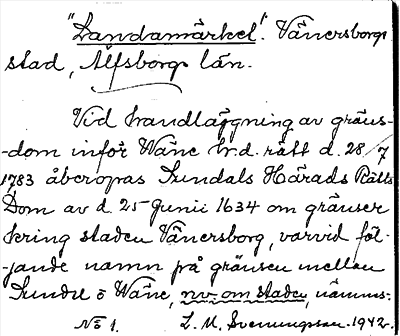 "Landamärket". Vänersborgs
stad, Älfsborgs län.
Vid handläggning av gräns-
-dom inför Wäne hr.d. rätt d. 28/7
1783 åberopas Sundals Härads Rätts
Dom av d. 25 Junii 1634 om gränser
kring staden Vänersborg, varvid föl-
-jande namn på gränsen mellan
Sundal o Wäne, nv. om staden, nämns.-
No 1. L. M. Svenungson. 1942.